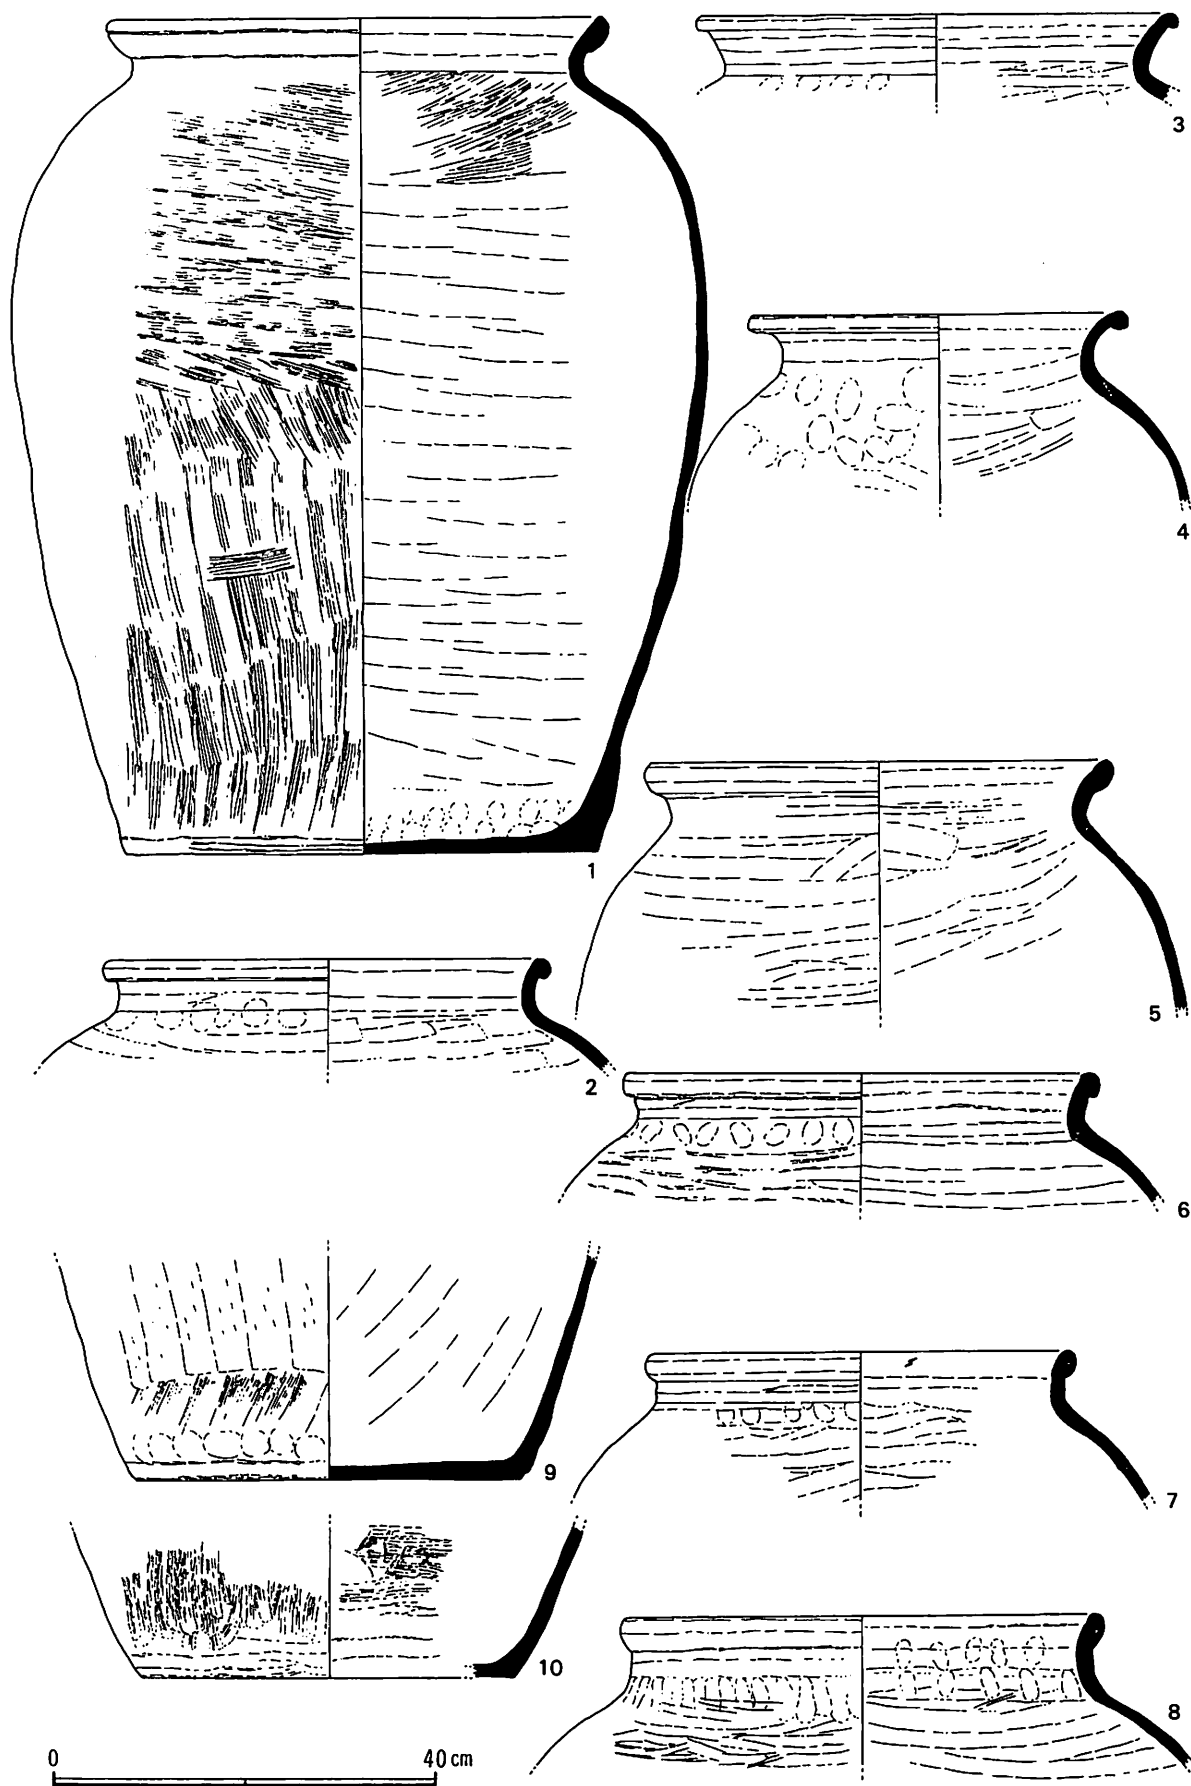 3
4
1
5
2
6
9
7
10
8
0 40 cm